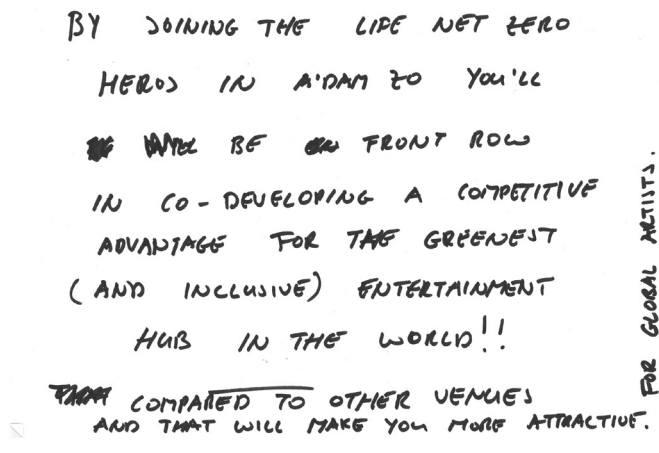 BY JOINING THE LIFE NET ZERO
HEROS IN A'DAM ZO YOU'LL
BE FRONT ROW
IN CO-DEVELOPING A COMPETITIVE
ADVANTAGE FOR THE GREENEST
(AND INCLUSIVE) ENTERTAINMENT
HUB IN THE WORLD!!
COMPARED TO OTHER VENUES
AND THAT WILL MAKE YOU MORE ATTRACTIVE.
FOR GLOBAL ARTISTS.